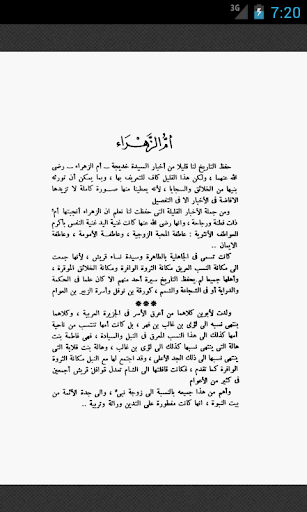 3G 7:20
أم الزهراء
حفظ التاريخ لنا قليلا من أخبار السيدة خديجة .. أم الزهراء .. رضى
الله عنهما ، ولكن هذا القليل كاف للتعريف بها ، وبما يمكن أن تورثه
بنيها من الخلائق والسجايا ، لأنه يعطينا منها صورة كاملة لا تزيدها
الافاضة فى الأخبار الا فى التفصيل
ومن جملة الأخبار القليلة التى حفظت لنا نعلم ان الزهراء أنجبتها أم
ذات فطنة ورجاحة ، وانها رضى الله عنها كانت غنية اليد غنية النفس بأكرم
العواطف الأنثوية : عاطفة المحبة الزوجية ، وعاطفة الأمومة ، وعاطفة
الايمان ..
كانت تسمى فى الجاهلية بالطاهرة وسيدة نساء قريش ، لأنها جمعت
الى مكانة النسب العريق مكانة الثروة الوافرة ومكانة الخلائق الموقرة ،
وأهلها جميعا لم يحفظ التاريخ سيرة أحد منهم الا كان علما فى الحكمة
والدراية أو فى الشجاعة والشمم ، كورقة بن نوفل وأسرة الزبير بن العوام
***
ولدت لأبوين كلاهما من أعرق الأسر فى الجزيرة العربية ، وكلاهما
ينتهى نسبه الى لؤى بن غالب بن فهر ، بل كانت أمها تنتسب من ناحية
أمها كذلك الى هذا النسب المعرق فى النبل والسيادة ، فهى فاطمة بنت
هالة التى ينتهى نسبها كذلك الى لؤى بن غالب ، وهالة بنت قلابة التى
ينتهى نسبها كذلك الى ذلك الجد الأعلى ، وقد اجتمع لها مع النبل مكانة الثروة
الوافرة كما تقدم ، فكانت قافلتها الى الشام تعدل قوافل قريش أجمعين
فى كثير من الأعوام
وأهم من هذا جميعه بالنسبة الى زوجة نبى ، والى جدة الأئمة من
بيت النبوة ، انها كانت مفطورة على التدين وراثة وتربية ..